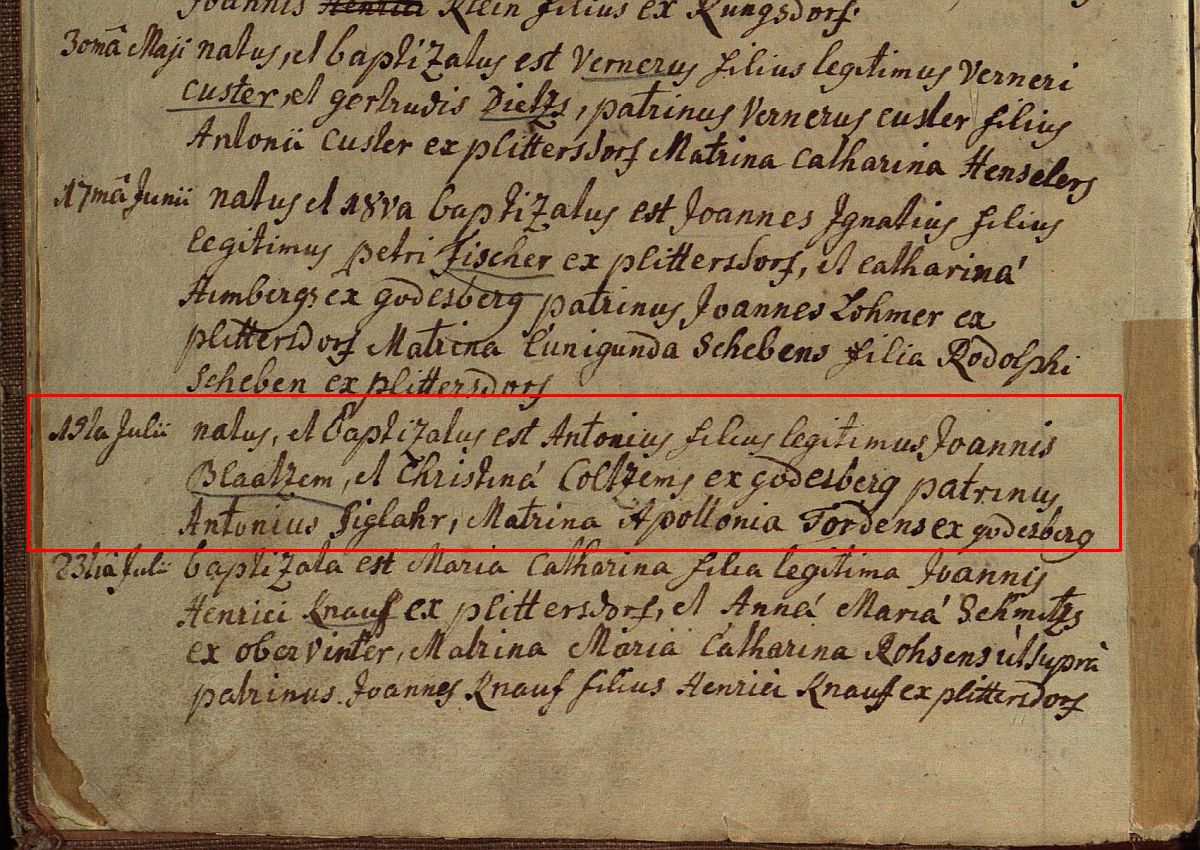 Joannis Henrici Klein filius ex Rungsdorf.
30mâ Maji natus, et baptizatus est Vernerus filius legitimus Verneri
Custer, et gertrudis Dietzs, patrinus Vernerus custer filius
Antonii Custer ex plittersdorf Matrina Catharina Henselers
17mâ Junii natus et 18va baptizatus est Joannes Ignatius filius
legitimus petri Fischer ex plittersdorf, et catharinâ
Aimbergs ex godesberg patrinus Joannes Lohmer ex
plittersdorf Matrina Cunigunda Schebens filia Rodolphi
Scheben ex plittersdorf
19ta Julii natus, et baptizatus est Antonius filius legitimus Joannis
Blaatzem, et Christinâ Coltzems ex godesberg patrinus
Antonius Siglahr, Matrina Apollonia Tordens ex godesberg
23tiâ Julii baptizata est Maria Catharina filia legitima Joannis
Henrici Knauff ex plittersdorf, et Annâ Mariâ Schmitzs
ex obervinter, Matrina Maria Catharina Rohsens ùt suprà
patrinus Joannes Knauf filius Henrici Knauff ex plittersdorf